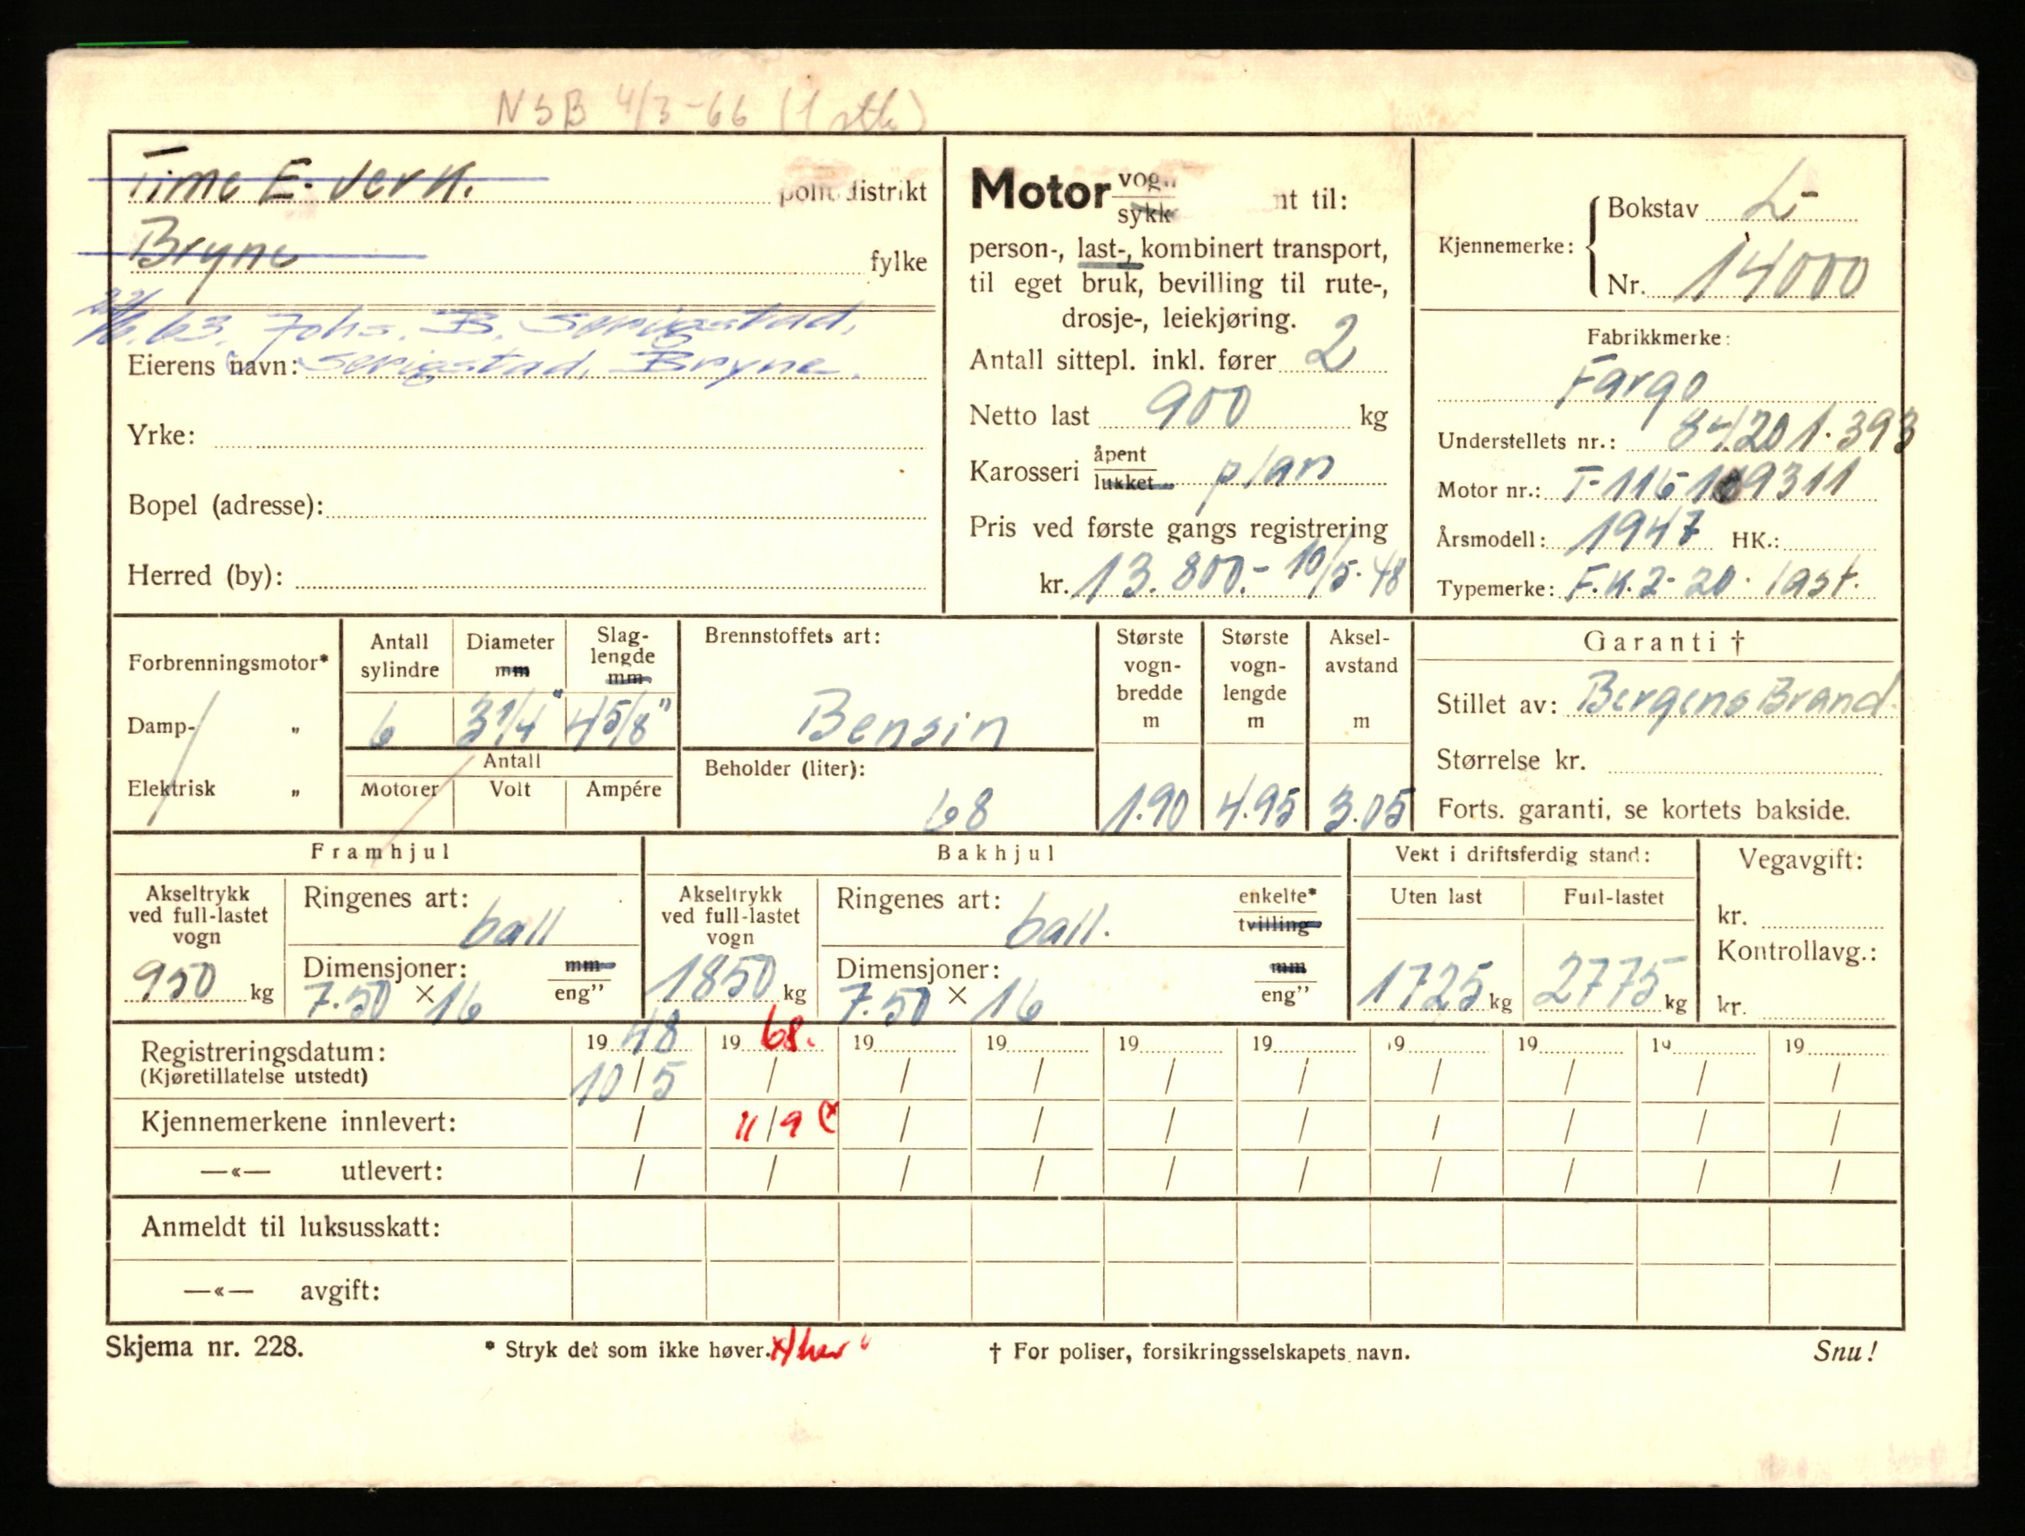 NSB 4/3-66 (1 stk)
Time E. verk. politidistrikt
Bryne fylke
63. Johs. B. Serigstad,
Eierens navn: Serigstad, Bryne.
Yrke:
Bopel (adresse):
Herred (by):
Motor vogn sykk nt til:
person-, last-, kombinert transport,
til eget bruk, bevilling til rute-,
drosje-, leiekjøring.
Antall sittepl. inkl. fører 2
Netto last 900 kg
Karosseri åpent lukket plan
Pris ved første gangs registrering
kr. 13.800.- 10/5-48
Kjennemerke: Bokstav L-
Nr. 14000
Fabrikkmerke:
Fargo
Understellets nr.: 84201.393
Motor nr.: T-116 109311
Årsmodell: 1947 HK.:
Typemerke: F.K.2-20. last.
Forbrenningsmotor*
Damp- „
Elektrisk „
Antall sylindre 6
Diameter mm 3 1/4"
Slaglengde mm 4 5/8"
Antall
Motorer Volt Ampére
Brennstoffets art:
Bensin
Beholder (liter):
68
Største vognbredde m 1.90
Største vognlengde m 4.95
Akselavstand m 3.05
Garanti †
Stillet av: Bergens Brand.
Størrelse kr.
Forts. garanti, se kortets bakside.
Framhjul
Akseltrykk ved full-lastet vogn 950 kg
Ringenes art: ball
Dimensjoner: mm eng”
7.50 × 16
Bakhjul
Akseltrykk ved full-lastet vogn 1850 kg
Ringenes art: ball. enkelte* tvilling
Dimensjoner: mm eng”
7.50 × 16
Vekt i driftsferdig stand:
Uten last Full-lastet
1725 kg 2775 kg
Vegavgift:
kr.
Kontrollavg.:
kr.
Registreringsdatum: 19 48 19 68. 19 19 19 19 19 19 19 19
(Kjøretillatelse utstedt) 10/5 / / / / / / / / /
Kjennemerkene innlevert: / 11/9 (x / / / / / / / /
—«— utlevert: / / / / / / / / / /
Anmeldt til luksusskatt:
—«— avgift:
Skjema nr. 228. * Stryk det som ikke høver. x) her † For poliser, forsikringsselskapets navn. Snu!